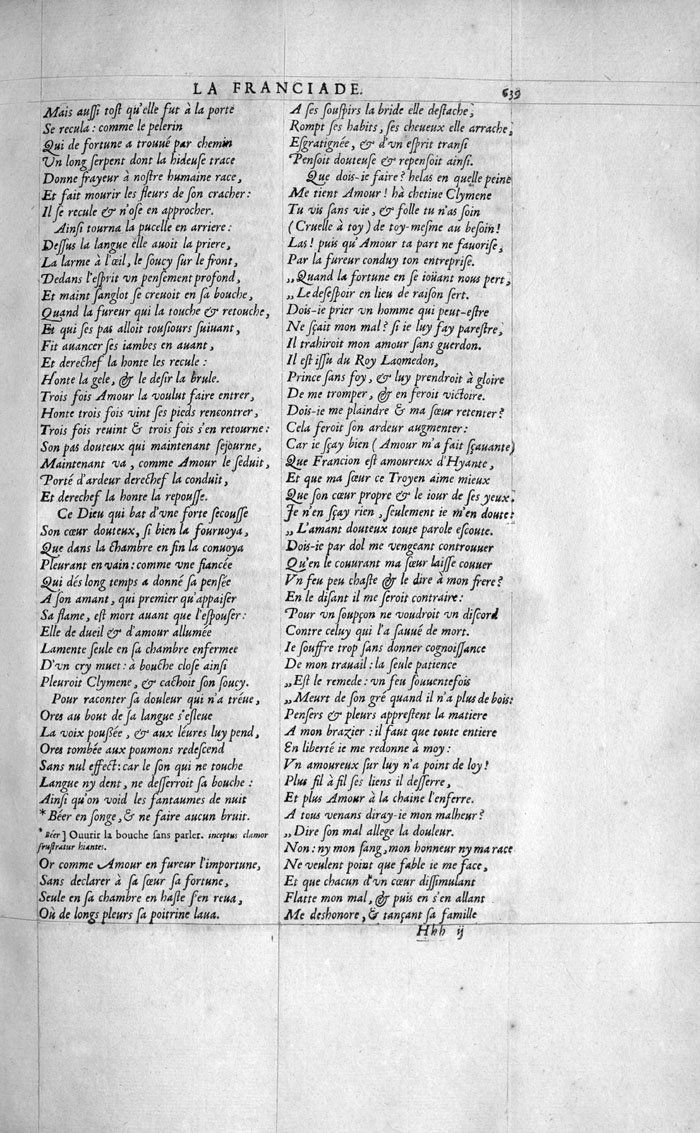 LA FRANCIADE.
639
Mais aussi tost qu'elle fut à la porte
Se recula : comme le pelerin
Qui de fortune a trouué par chemin
Vn long serpent dont la hideuse trace
Donne frayeur à nostre humaine race,
Et fait mourir les fleurs de son cracher :
Il se recule & n'ose en approcher.
Ainsi tourna la pucelle en arriere :
Dessus la langue elle auoit la priere,
La larme à l'œil, le soucy sur le front,
Dedans l'esprit vn pensement profond,
Et maint sanglot se creuoit en sa bouche,
Quand la fureur qui la touche & retouche,
Et qui ses pas alloit tousiours suiuant,
Fit auancer ses iambes en auant,
Et derechef la honte les recule :
Honte la gele, & le desir la brule.
Trois fois Amour la voulut faire entrer,
Honte trois fois vint ses pieds rencontrer,
Trois fois reuint & trois fois s'en retourne :
Son pas douteux qui maintenant sejourne,
Maintenant va, comme Amour le seduit,
Porté d'ardeur derechef la conduit,
Et derechef la honte la repousse.
Ce Dieu qui bat d'vne forte secousse
Son cœur douteux, si bien la fouruoya,
Que dans la chambre en fin la conuoya
Pleurant en vain : comme vne fiancée
Qui dés long temps a donné sa pensée
A son amant, qui premier qu'appaiser
Sa flame, est mort auant que l'espouser :
Elle de dueil & d'amour allumée
Lamente seule en sa chambre enfermee
D'vn cry muet : à bouche close ainsi
Pleuroit Clymene, & cachoit son soucy.
Pour raconter sa douleur qui n'a tréue,
Ores au bout de sa langue s'esleue
La voix poussée, & aux léures luy pend,
Ores tombée aux poumons redescend
Sans nul effect : car le son qui ne touche
Langue ny dent, ne desserroit sa bouche :
Ainsi qu'on void les fantaumes de nuit
* Béer en songe, & ne faire aucun bruit.
* Béer] Ouurir la bouche sans parler. inceptus clamor
frustratur hiantes.
Or comme Amour en fureur l'importune,
Sans declarer à sa sœur sa fortune,
Seule en sa chambre en haste s'en reua,
Où de longs pleurs sa poitrine laua.
A ses souspirs la bride elle destache,
Rompt ses habits, ses cheueux elle arrache,
Esgratignée, & d'vn esprit transi
Pensoit douteuse & repensoit ainsi.
Que dois-ie faire ? helas en quelle peine
Me tient Amour ! hà chetiue Clymene
Tu vis sans vie, & folle tu n'as soin
(Cruelle à toy) de toy-mesme au besoin !
Las ! puis qu'Amour ta part ne fauorise,
Par la fureur conduy ton entreprise.
„Quand la fortune en se ioüant nous pert,
„Le desespoir en lieu de raison sert.
Dois-ie prier vn homme qui peut-estre
Ne sçait mon mal ? si ie luy fay parestre,
Il trahiroit mon amour sans guerdon.
Il est issu du Roy Laomedon,
Prince sans foy, & luy prendroit à gloire
De me tromper, & en feroit victoire.
Dois-ie me plaindre & ma sœur retenter ?
Cela feroit son ardeur augmenter :
Car ie sçay bien (Amour m'a fait sçauante)
Que Francion est amoureux d'Hyante,
Et que ma sœur ce Troyen aime mieux
Que son cœur propre & le iour de ses yeux.
Je n'en sçay rien, seulement ie m'en doute :
„L'amant douteux toute parole escoute.
Dois-ie par dol me vengeant controuuer
Qu'en le couurant ma sœur laisse couuer
Vn feu peu chaste & le dire à mon frere ?
En le disant il me seroit contraire :
Pour vn soupçon ne voudroit vn discord
Contre celuy qui l'a sauué de mort.
Ie souffre trop sans donner cognoissance
De mon trauail : la seule patience
„Est le remede : vn feu souuentefois
„Meurt de son gré quand il n'a plus de bois :
Pensers & pleurs apprestent la matiere
A mon brazier : il faut que toute entiere
En liberté ie me redonne à moy :
Vn amoureux sur luy n'a point de loy !
Plus fil à fil ses liens il desserre,
Et plus Amour à la chaine l'enferre.
A tous venans diray-ie mon malheur ?
„Dire son mal allege la douleur.
Non : ny mon sang, mon honneur ny ma race
Ne veulent point que fable ie me face,
Et que chacun d'vn cœur dissimulant
Flatte mon mal, & puis en s'en allant
Me deshonore, & tançant sa famille
Hhh ij